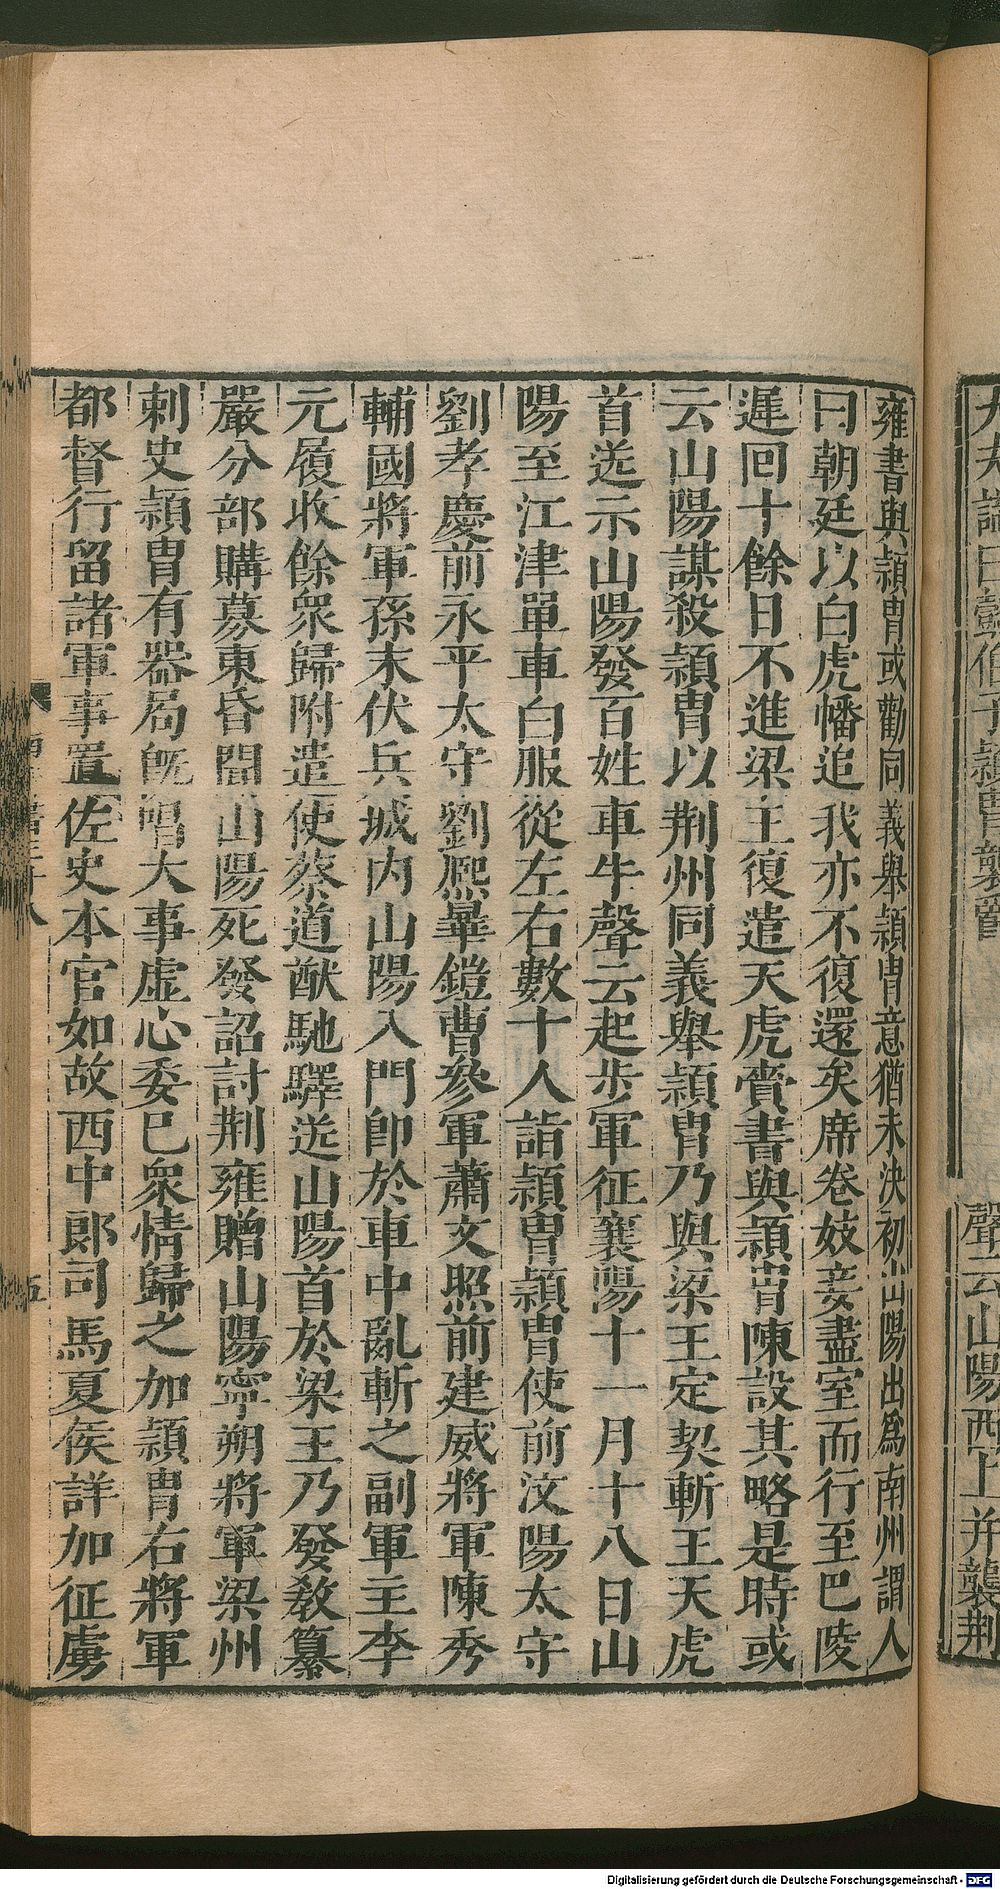 大夫諡曰懿伯子穎胄襲爵
聲云山陽西上并襲荆
雍書與穎胄或勸同義舉穎胄意猶未決初山陽出為南州謂人
曰朝廷以白虎幡追我亦不復還矣席卷妓妾盡室而行至巴陵
遲回十餘日不進梁王復遣天虎賫書與穎胄陳設其略是時或
云山陽謀殺穎胄以荆州同義舉穎胄乃與梁王定契斬王天虎
首送示山陽發百姓車牛聲云起步軍征襄陽十一月十八日山
陽至江津單車白服從左右數十人詣穎胄穎胄使前汶陽太守
劉孝慶前永平太守劉熈曅鎧曹參軍蕭文照前建威將軍陳秀
輔國將軍孫末伏兵城内山陽入門即於車中亂斬之副軍主李
元履收餘衆歸附遣使蔡道猷馳驛送山陽首於梁王乃發教纂
嚴分部購募東昏聞山陽死發詔討荆雍贈山陽寧朔將軍梁州
刺史穎胄有器局旣唱大事虛心委巳衆情歸之加穎胄右將軍
都督行留諸軍事置佐史本官如故西中郎司馬夏侯詳加征虜
五
Digitalisierung gefördert durch die Deutsche Forschungsgemeinschaft - DFG